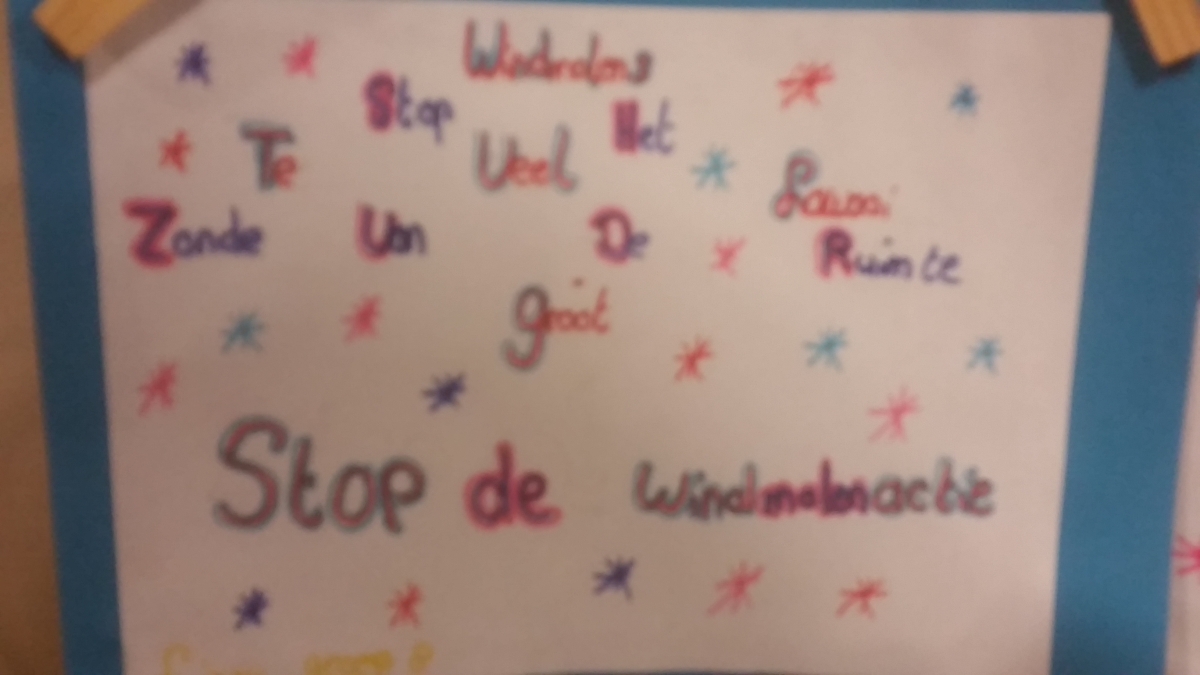 Windmolens
Stop Het
Te Veel Lawaai
Zonde Van De Ruimte
groot
Stop de Windmolenactie